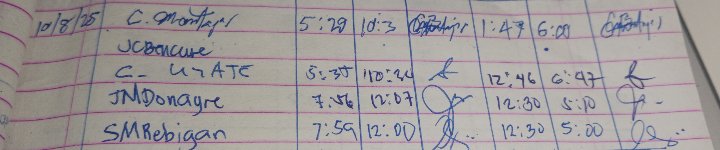 10/8/25 C. Montajes 5:29 10:3 1:47 6:00
JCBencure
C- UYATE 5:35 10:34 12:46 6:47
JMDonagre 7:56 12:07 12:30 5:10
SMRebigan 7:59 12:00 12:30 5:00